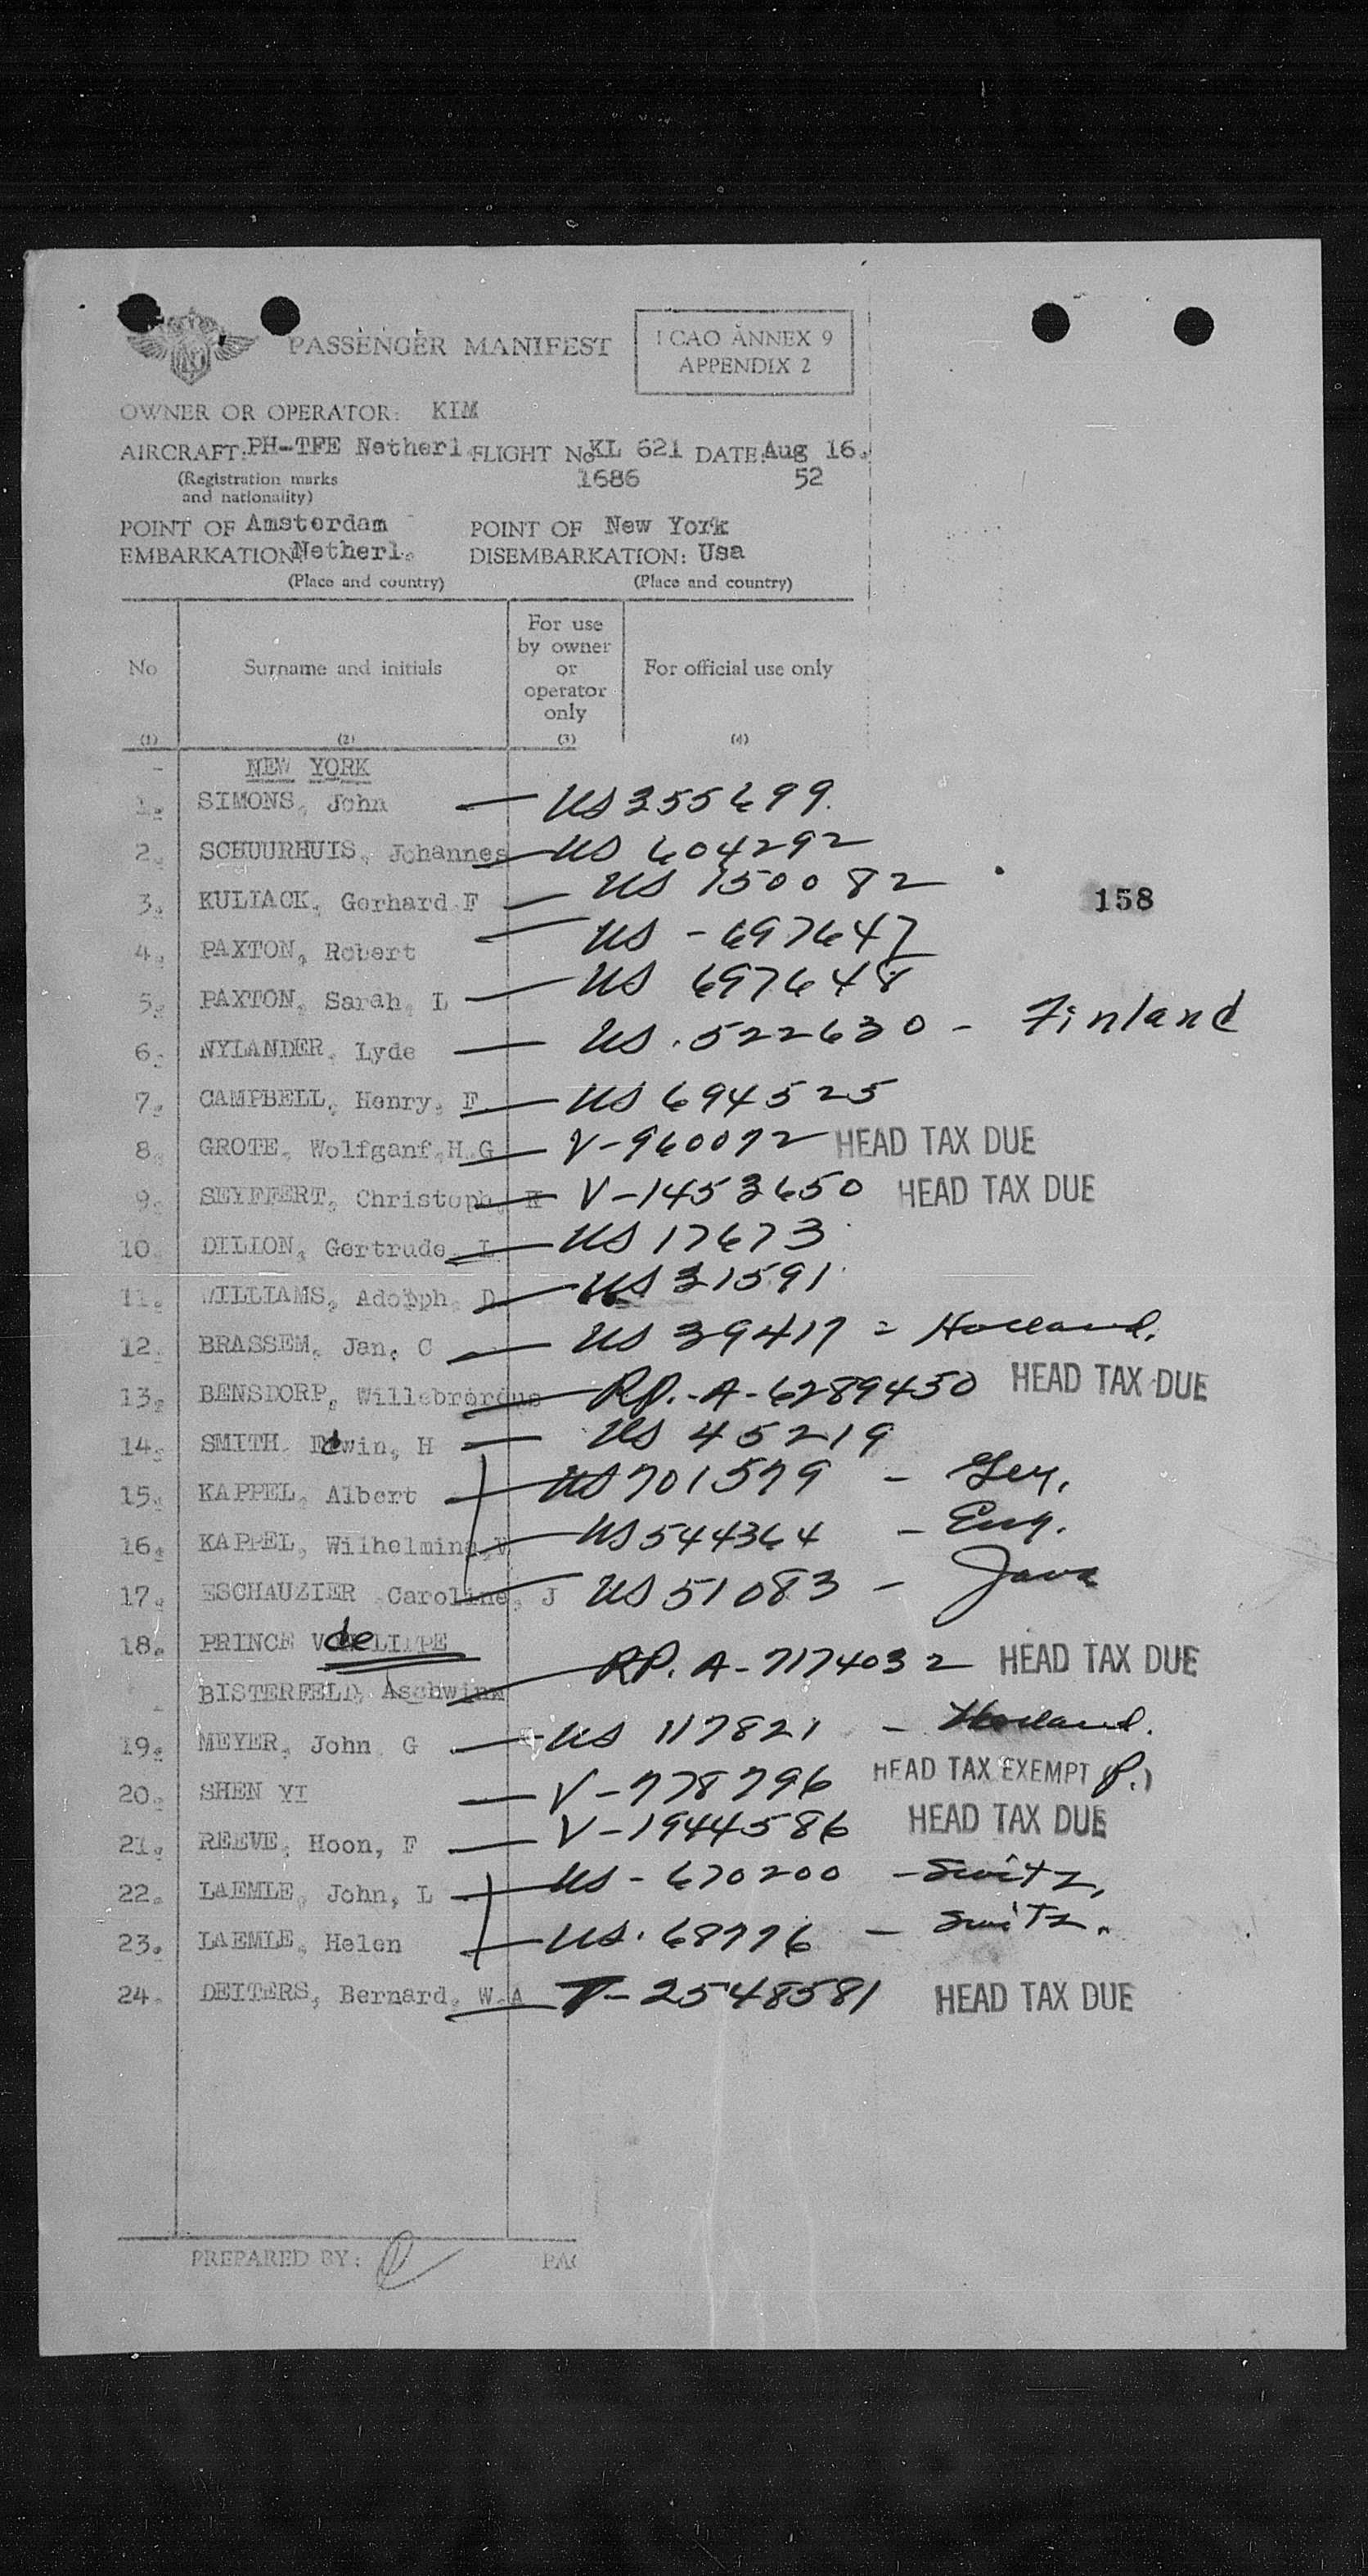 PASSENGER MANIFEST
ICAO ANNEX 9
APPENDIX 2
OWNER OR OPERATOR: KLM
AIRCRAFT: PH-TFE Netherl FLIGHT No KL 621 DATE: Aug 16.
(Registration marks 1686 52
and nationality)
POINT OF Amsterdam POINT OF New York
EMBARKATION: Netherl. DISEMBARKATION: Usa
(Place and country) (Place and country)
No Surname and initials For use by owner or operator only For official use only
(1) (2) (3) (4)
- NEW YORK
1. SIMONS, John — US 355699.
2. SCHUURHUIS, Johannes — US 604292
3. KULIACK, Gerhard F — US 150082
158
4. PAXTON, Robert — US - 697647
5. PAXTON, Sarah, L — US 697648
6. NYLANDER, Lyde — US. 522630 - Finland
7. CAMPBELL, Henry, F — US 694525
8. GROTE, Wolfganf, H.G — V-960072 HEAD TAX DUE
9. SEYFFERT, Christoph, K — V-1453650 HEAD TAX DUE
10. DILLON, Gertrude, L — US 17673
11. WILLIAMS, Adolph, D — US 31591
12. BRASSEM, Jan, C — US 39417 - Holland.
13. BENSDORP, Willebrordus — RP.-A-6289450 HEAD TAX DUE
14. SMITH Edwin, H — US 45219
15. KAPPEL, Albert — US 701579 - Ger.
16. KAPPEL, Wilhelmina, — US 544364 - Eng.
17. ESCHAUZIER Caroline, J US 51083 - Java
18. PRINCE de LIPPE
BISTERFELD, Aschwin — RP. A-7174032 HEAD TAX DUE
19. MEYER, John G — US 117821 - Holland.
20. SHEN YI — V-778796 HEAD TAX EXEMPT (P.)
21. REEVE, Hoon, F — V-1944586 HEAD TAX DUE
22. LAEMLE, John, L — US - 670200 - Switz.
23. LAEMLE, Helen — US. 68776 - Switz.
24. DEITERS, Bernard, W.A — V-2548581 HEAD TAX DUE
PREPARED BY: PAG